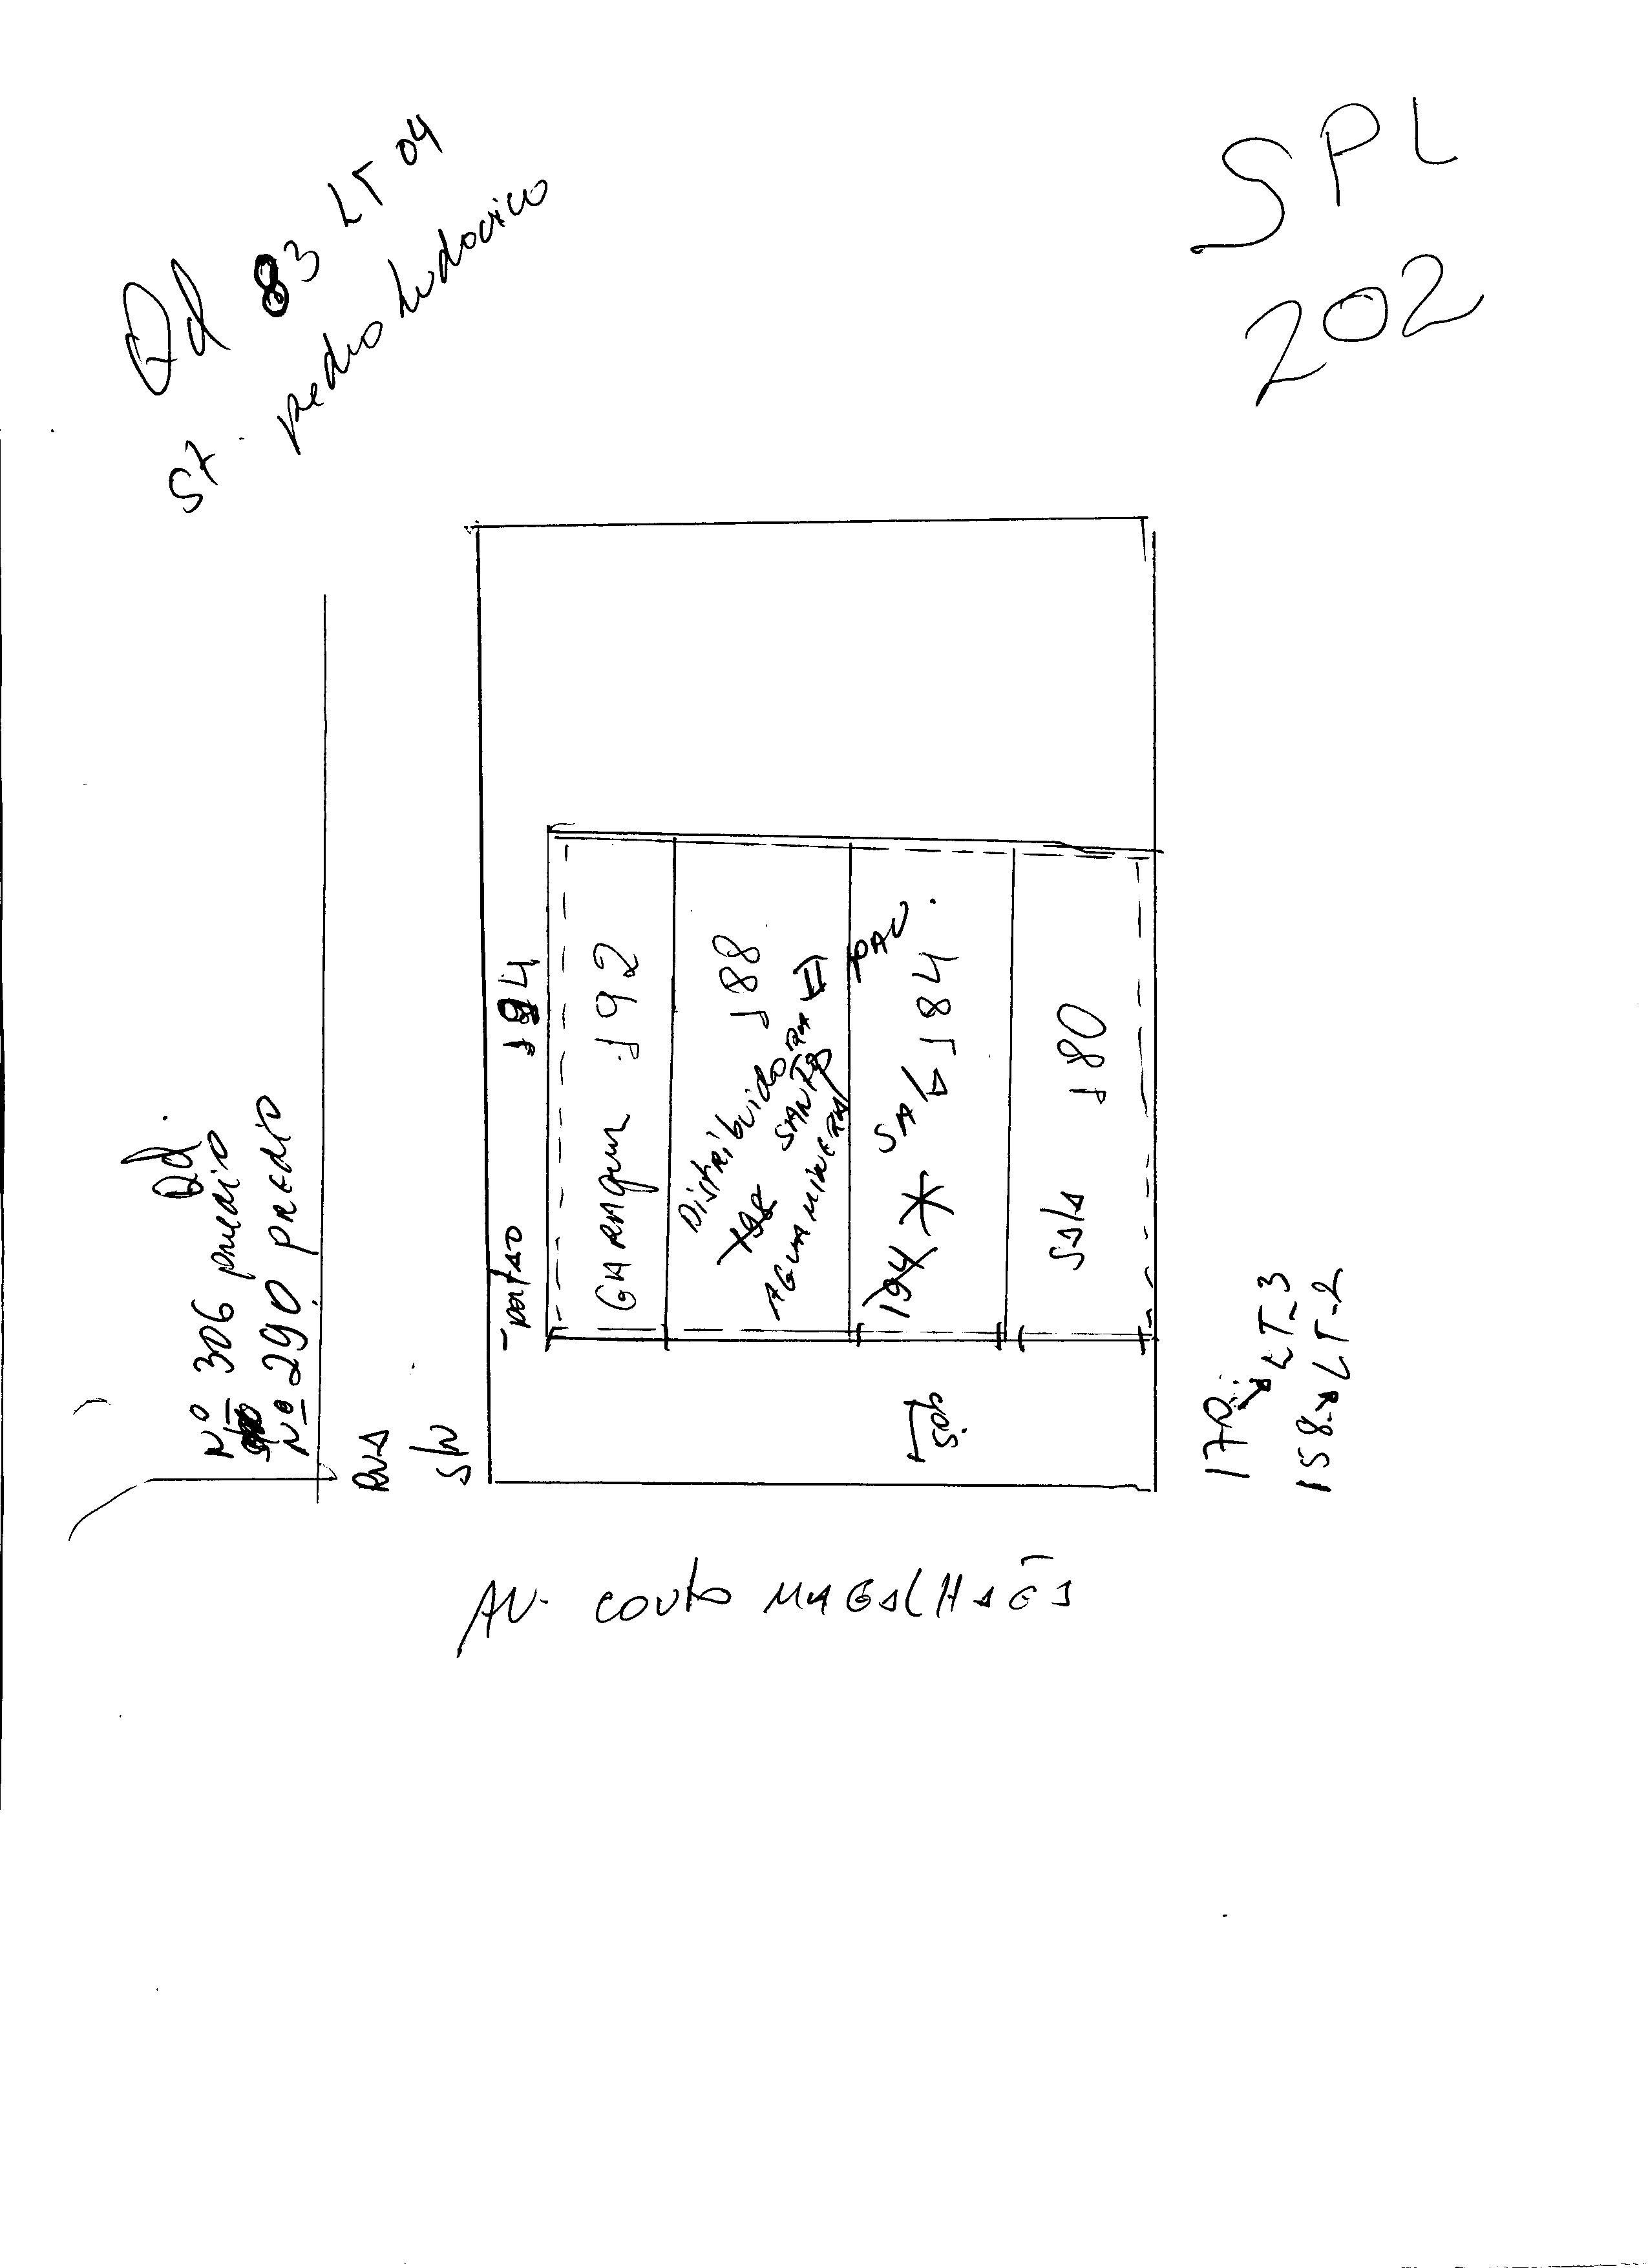 Qd 83 LT 04
St. pedro Ludovico
SPL
202
Qd.
Nº 306 predio
Nº 290 predio
RUA
S/N
portao 194
GARAGem 192
Distribuidora 188
198 SANTA
AGUA MINERAL
PAV.
194 * SALA 184
SALA 180
170 LT-3
158 LT-2
AV. couto MAGALHAES